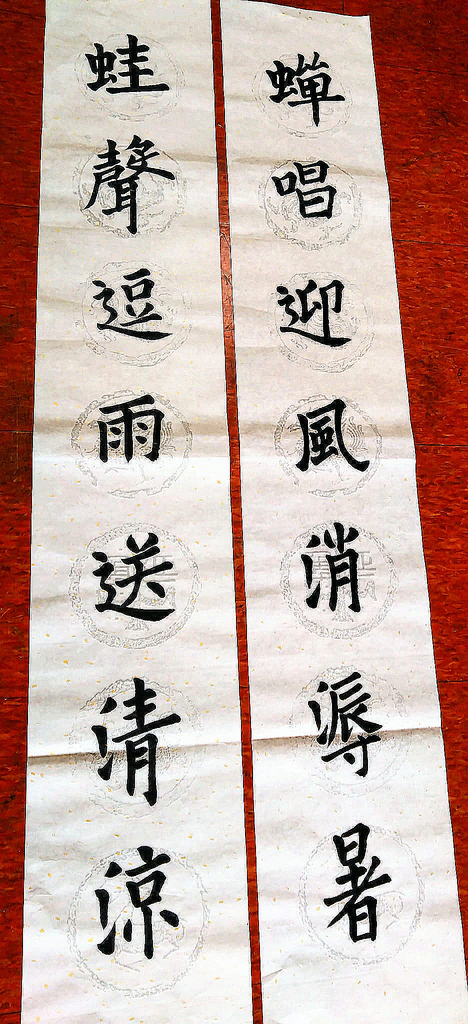 蟬唱迎風消溽暑
蛙聲逗雨送清涼